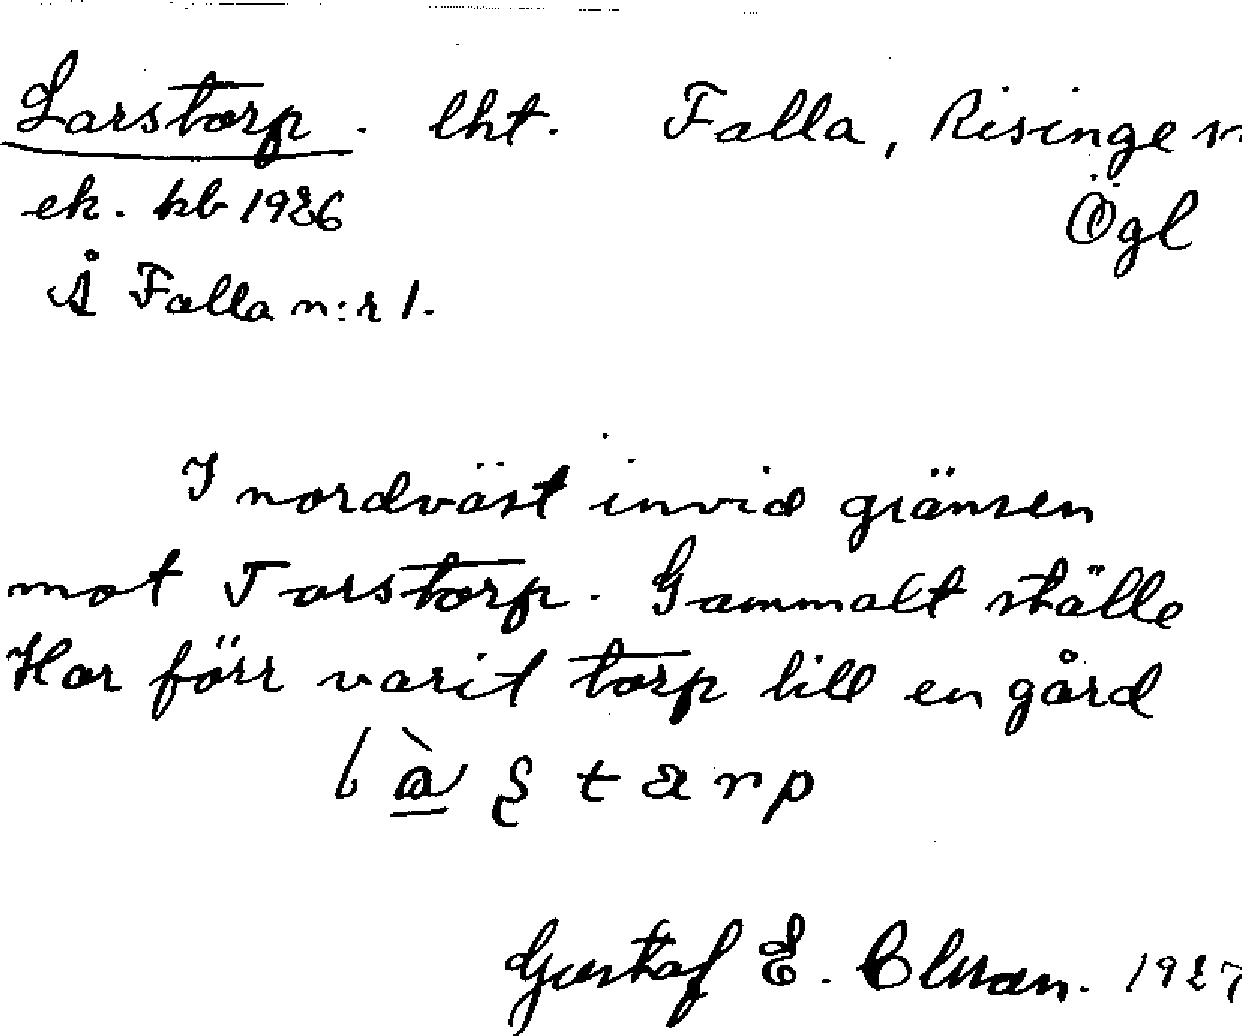 Larstorp. lht. Falla, Risinge sn
ek. kb 1926 Ögl
Å Falla n:r 1.
I nordväst invid gränsen
mot Torstorp. Gammalt ställe
Har förr varit torp till en gård
Gustaf E. 1927